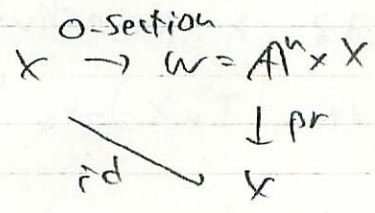 0-section
X → W = Aⁿ × X
↓ pr
id X